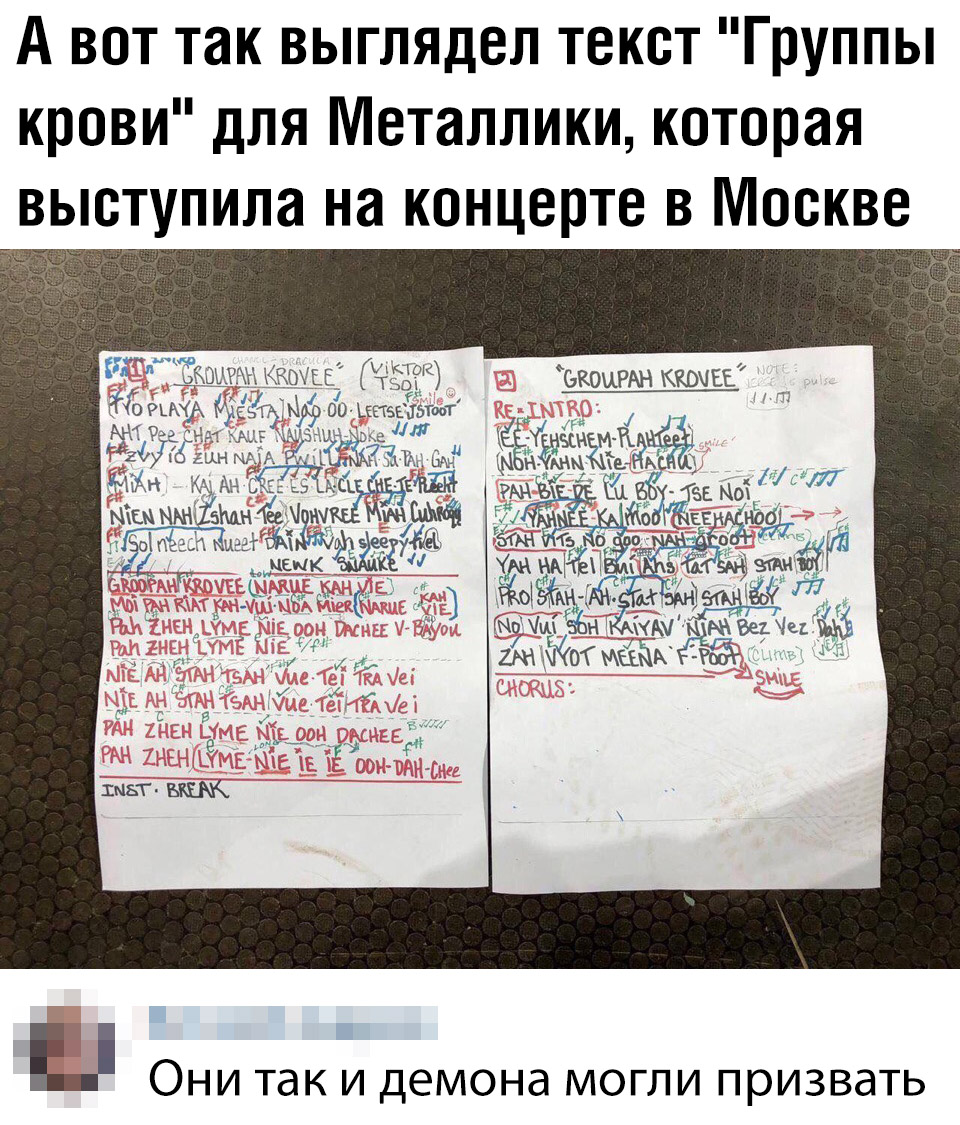 А вот так выглядел текст "Группы
крови" для Металлики, которая
выступила на концерте в Москве
1 "GROUPAH KROVEE" (VIKTOR TSOI)
TYO PLAYA MIESTA NAO OO. LEETSE JSTOOT
Smile
AHT Pee CHAT KAUF NAUSHUH NOKE
ZVYIO ZUH NAJA
MIAH KAJ AH CREE ES LAJCLE CHE-TE
NIEN NAH Zshah-Tee VOHVREE MIAH
Sol neech Nueet DAIN Vah sleepy
NEWK SNAUKE
GROOPAH KROVEE (NARUE KAH VIE)
MOI PAH RIAT KAH-VUI-NOA MIER (NARUE KAH VIE)
Pah ZHEH LYME NIE OOH DACHEE V-BAYOU
Pah ZHEH LYME NIE
NIE AH STAH TSAH VUE-TEI TRA Vei
NIE AH STAH TSAH VUE-TEI TRA Vei
PAH ZHEH LYME NIE OOH DACHEE
PAH ZHEH (LYME-NIE IE IE OOH-DAH-CHee
INST. BREAK
2 "GROUPAH KROVEE" NOTE:
pulse
RE-INTRO:
EE-YEHSCHEM-PLAHTeet
SMILE
(NOH-YAHN NIE-HACHU)
PAH-BIE-DE LU BOY-TSE NOI
YAHNEE-KA MOOI NEEHACHOO
STAH VITS NO goo NAH-groot
YAH HA Tel BUI Ahs TAT SAH STAH BOY
PRO STAH-AH-STAT SAH STAH BOY
NO VUI SOH KAIYAV NIAH Bez Vez Dah
ZAH VYOT MEENA F-POOT (CLIMB)
SMILE
CHORUS:
Они так и демона могли призвать